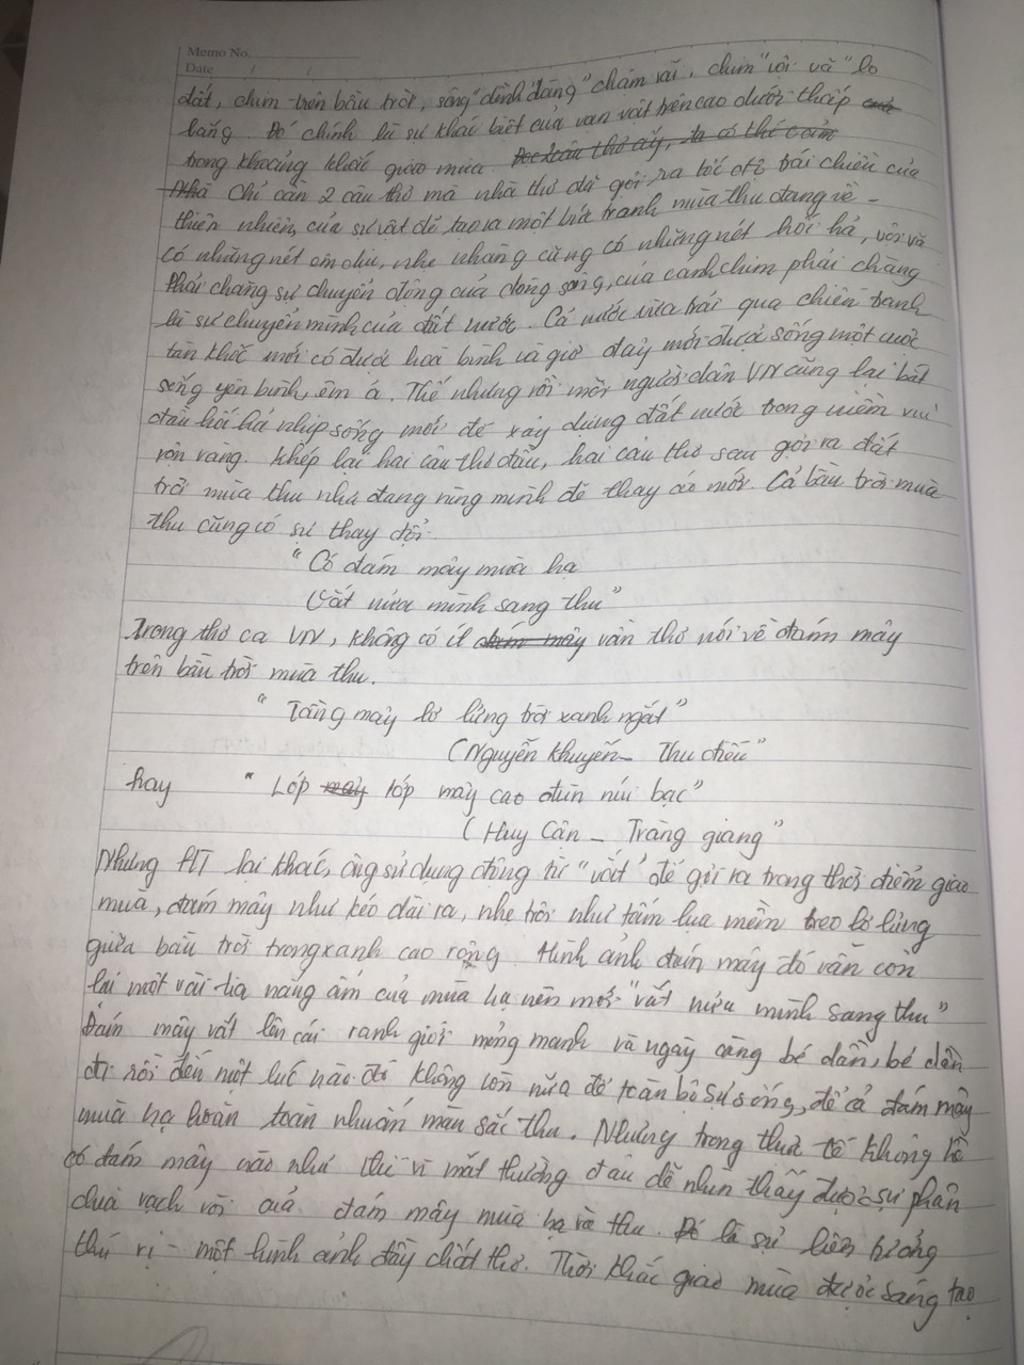 Memo No.
Date / /
đất, chim trên bầu trời, sông "dềnh dàng" chậm rãi, chim "vội vã" lo
lắng. Đó chính là sự khác biệt của vạn vật trên cao dưới thấp
trong khoảng khắc giao mùa. Đọc 2 câu thơ ấy, ta có thể cảm
Nhà Chỉ cần 2 câu thơ mà nhà thơ đã gợi ra tốc độ trái chiều của
thiên nhiên, của sự vật để tạo ra một bức tranh mùa thu đang về -
có những nét êm dịu, nhẹ nhàng cũng có những nét hối hả, vội vã
Phải chăng sự chuyển động của dòng sông, của cánh chim phải chăng
là sự chuyển mình của đất nước. Cả nước vừa trải qua chiến tranh
tàn khốc mới có được hoà bình và giờ đây mới được sống một cuộc
sống yên bình, êm ả. Thế nhưng rồi mỗi người dân VN cũng lại bắt
đầu hối hả nhịp sống mới để xây dựng đất nước trong niềm vui
rộn ràng. Khép lại hai câu thơ đầu, hai câu thơ sau gợi ra đất
trời mùa thu như đang rùng mình để thay áo mới. Cả bầu trời mùa
thu cũng có sự thay đổi.
"Có đám mây mùa hạ
Vắt nửa mình sang thu"
Trong thơ ca VN, không có ít đám mây vần thơ nói về đám mây
trên bầu trời mùa thu.
"Tầng mây lơ lửng trời xanh ngắt"
(Nguyễn Khuyến - Thu điếu"
hay " Lớp mây lớp mây cao đùn núi bạc"
(Huy Cận - Tràng giang"
Nhưng HT lại khác, ông sử dụng động từ "vắt" để gợi ra trong thời điểm giao
mùa, đám mây như kéo dài ra, nhẹ trôi như tấm lụa mềm treo lơ lửng
giữa bầu trời trong xanh cao rộng. Hình ảnh đám mây đó vẫn còn
lại một vài tia nắng ấm của mùa hạ nên mới "vắt nửa mình sang thu"
Đám mây vắt lên cái ranh giới mỏng manh và ngày càng bé dần, bé dần
đi rồi đến một lúc nào đó không còn nữa để toàn bộ sự sống, để cả đám mây
mùa hạ hoàn toàn nhuốm màu sắc thu. Nhưng trong thực tế không hề
có đám mây nào như thế vì mắt thường đâu dễ nhìn thấy được sự phân
chia vạch rõ của đám mây mùa hạ và thu. Đó là sự liên tưởng
thú vị - một hình ảnh đầy chất thơ. Thời khắc giao mùa được sáng tạo